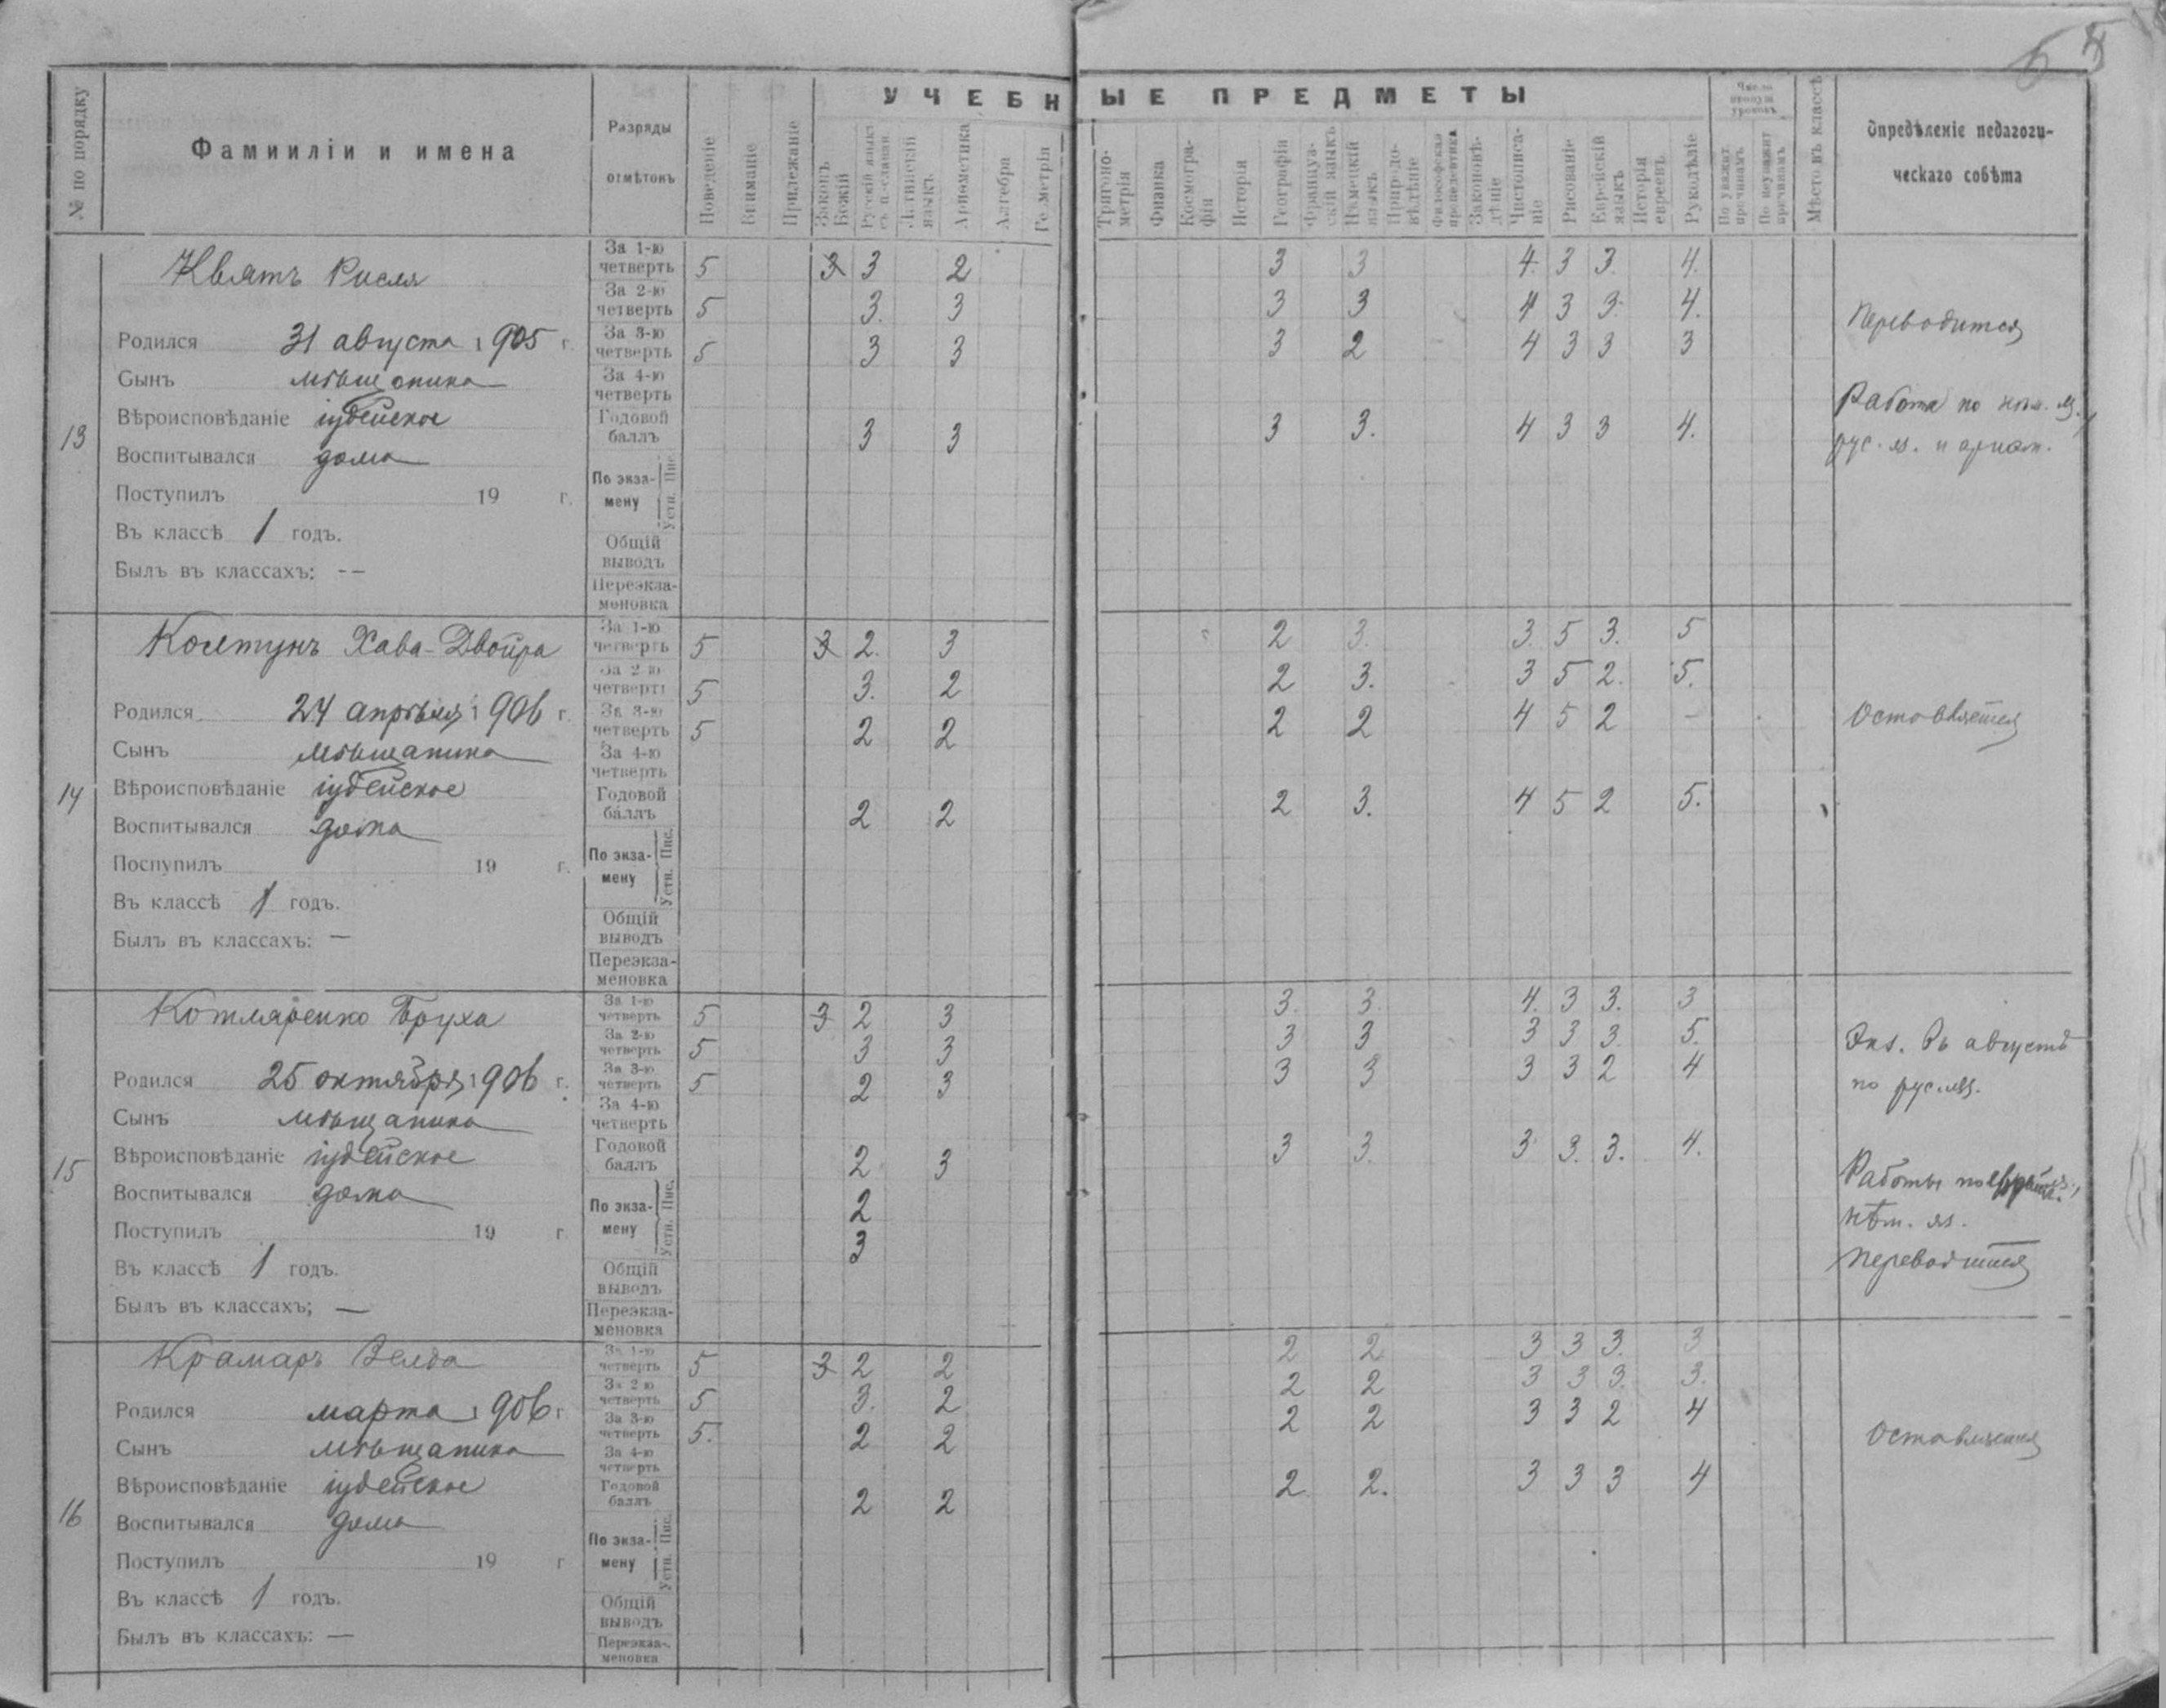 6 5
№ по порядку
Фамииліи и имена
Разряды
отмѣтокъ
УЧЕБНЫЕ ПРЕДМЕТЫ
Поведеніе
Вниманіе
Прилежаніе
Законъ Божій
Русскій языкъ
Латинскій языкъ
Ариѳметика
Алгебра
Геометрія
Тригоно-метрія
Физика
Космогра-фія
Исторія
География
Француз-скій языкъ
Нѣмецкій языкъ
Природо-вѣдѣніе
Философская пропедевтика
Законовѣ-дѣніе
Чистописа-ніе
Рисованіе
Еврейскій языкъ
Исторія евреевъ
Рукодѣліе
Число пропущ. уроковъ
По уважит. причинамъ
По неуважит причинамъ
Мѣсто въ классѣ
Опредѣленіе педагоги-
ческаго совѣта
13
Квятъ Рисля
Родился 31 августа 1905 г.
Сынъ мѣщанина
Вѣроисповѣданіе іудейское
Воспитывался дома
Поступилъ 19 г.
Въ классѣ 1 годъ.
Былъ въ классахъ: --
За 1-ю четверть 5 3 3 2 3 3 4. 3 3. 4.
За 2-ю четверть 5 3. 3 3 3 4 3 3. 4.
За 3-ю четверть 5 3 3 3 2 4 3 3 3
За 4-ю четверть
Годовой баллъ 3 3 3 3. 4 3 3 4.
По экза-мену Пис. Устн.
Общій выводъ
Переэкза-меновка
Переводится
Работа по нѣм. яз.,
рус. яз. и ариѳм.
14
Колтунъ Хава-Двойра
Родился 24 апрѣля 1906 г.
Сынъ мѣщанина
Вѣроисповѣданіе іудейское
Воспитывался дома
Поспупилъ 19 г.
Въ классѣ 1 годъ.
Былъ въ классахъ: —
За 1-ю четверть 5 3 2. 3 2 3. 3. 5 3. 5
За 2-ю четверть 5 3. 2 2 3. 3 5 2. 5.
За 3-ю четверть 5 2 2 2 2 4 5 2 -
За 4-ю четверть
Годовой баллъ 2 2 2 3. 4 5 2 5.
По экза-мену Пис. Устн.
Общій выводъ
Переэкза-меновка
Оставляется
15
Котляренко Бруха
Родился 25 октября 1906 г.
Сынъ мѣщанина
Вѣроисповѣданіе іудейское
Воспитывался дома
Поступилъ 19 г.
Въ классѣ 1 годъ.
Былъ въ классахъ; —
За 1-ю четверть 5 3 2 3 3. 3. 4. 3 3. 3
За 2-ю четверть 5 3 3 3 3 3 3 3. 5.
За 3-ю четверть 5 2 3 3 3 3 3 2 4
За 4-ю четверть
Годовой баллъ 2 3 3 3. 3 3. 3. 4.
По экза-мену Пис. 2
Устн. 3
Общій выводъ
Переэкза-меновка
Экз. въ августѣ
по рус. яз.
Работы по
нѣм. яз.
Переводится
16
Крамаръ Зелда
Родился марта 1906 г
Сынъ мѣщанина
Вѣроисповѣданіе іудейское
Воспитывался дома
Поступилъ 19 г
Въ классѣ 1 годъ.
Былъ въ классахъ: —
За 1-ю четверть 5 3 2 2 2 2 3 3 3. 3
За 2 ю четверть 5 3. 2 2 2 3 3 3. 3.
За 3-ю четверть 5. 2 2 2 2 3 3 2 4
За 4-ю четверть
Годовой баллъ 2 2 2 2. 3 3 3 4
По экза-мену Пис. Устн.
Общій выводъ
Переэкза-меновка
Оставляется